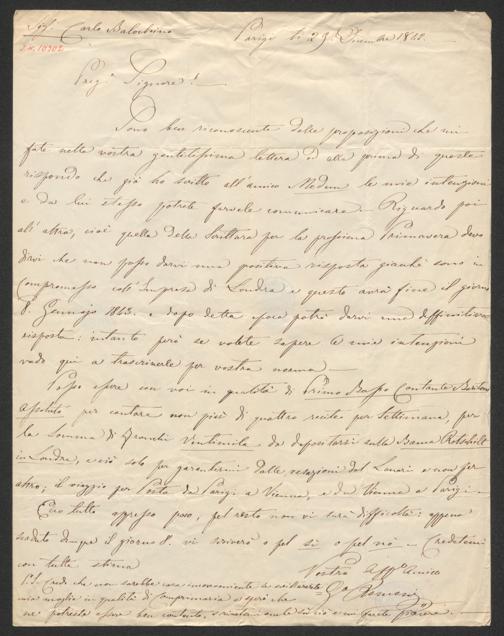 Sigr. Carlo Balochino Parigi li 29. Dicembre 1842.
I.N. 10302
Pregr. Signore!
Sono ben riconoscente delle proposizioni che mi
fate nella vostra gentilissima lettera ed alla prima di queste
rispondo che già ho scritto all'amico le mie intenzioni
e da lui stesso potrete farvele comunicare. Riguardo poi
all'altra, cioè quella della Scrittura per la prossima Primavera devo
dirvi che non posso darvi una positiva risposta giacchè sono in
Compromesso coll'Impresa di Londra e questo avrà fine il giorno
8. Gennajo 1843. e dopo detta epoca potrò darvi una diffinitiva
risposta: intanto però se volete sapere le mie intenzioni
vado qui a trascriverle per vostra norma
Posso essere con voi in qualità di Primo Basso Cantante Baritono
assoluto per cantare non più di quattro recite per Settimana, per
la Somma di Franchi Ventimila da depositarsi sulla Banca Rothschild
in Londra, e ciò solo per garentirmi dalle del e non per
altro; il viaggio per Posta da Parigi a Vienna, e da Vienna a Parigi.
Ecco tutto appresso poco, pel resto non vi sarà difficoltà: appena
scaduto dunque il giorno 8. vi scriverò o pel si o pel nò. Credetemi
con tutta stima
Vostro Affmo Amico
Gio
P.S. Credo che non sarebbe cosa inconveniente in scritturare
mia moglie in qualità di Comprimaria e spero che
ne potreste essere ben contento,